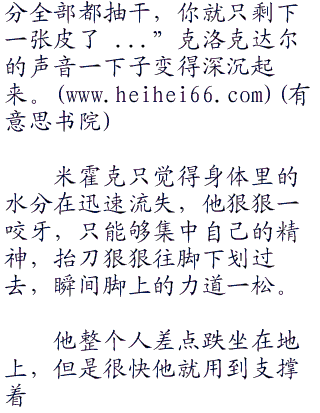 分全部都抽干，你就只剩下
一张皮了 ...”克洛克达尔
的声音一下子变得深沉起
来。(www.heihei66.com)(有
意思书院)
米霍克只觉得身体里的
水分在迅速流失，他狠狠一
咬牙，只能够集中自己的精
神，抬刀狠狠往脚下划过
去，瞬间脚上的力道一松。
他整个人差点跌坐在地
上，但是很快他就用到支撑
着